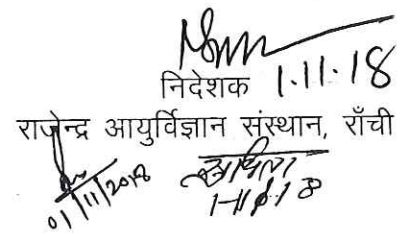 निदेशक 1.11.18
राजेन्द्र आयुर्विज्ञान संस्थान, राँची
01/11/2018